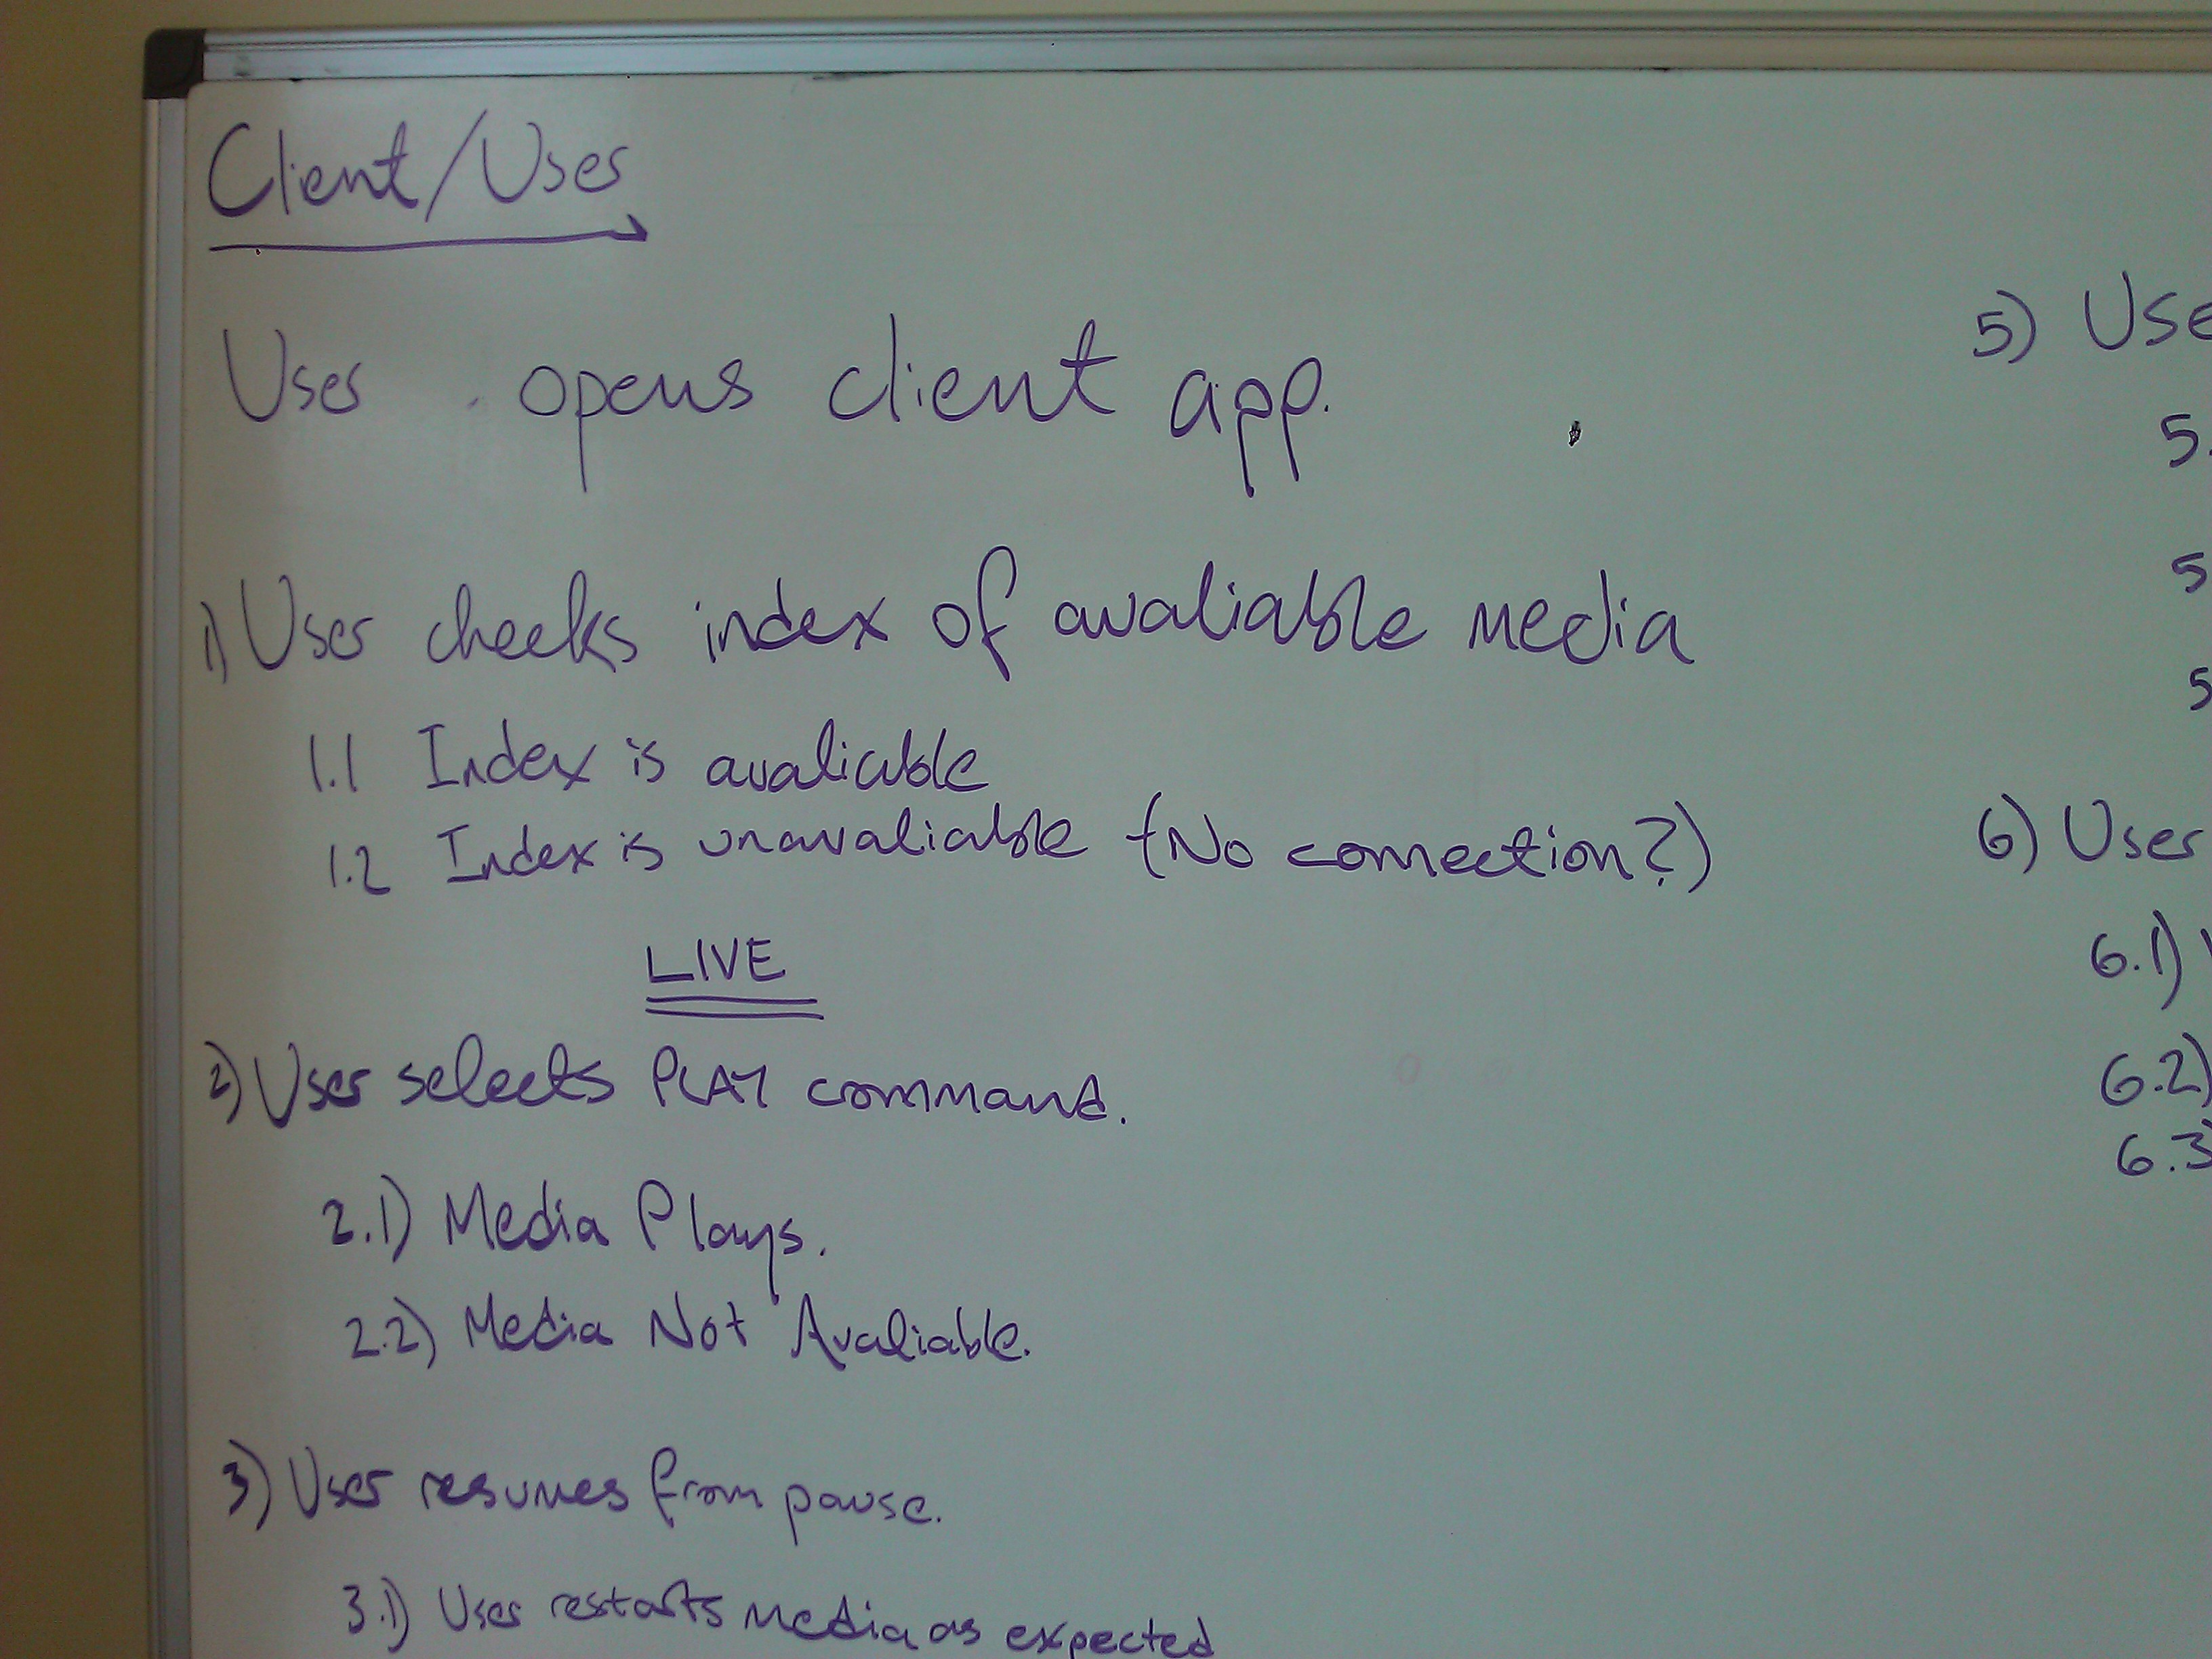 Client/User
User opens client app.
1) User checks index of avaliable media
1.1 Index is avaliable
1.2 Index is unavaliable (No connection?)
LIVE
2) User selects PLAY command.
2.1) Media Plays.
2.2) Media Not Avaliable.
3) User resumes from pause.
3.1) User restarts media as expected
5) Use
5.
5
5
6) User
6.1)
6.2)
6.3